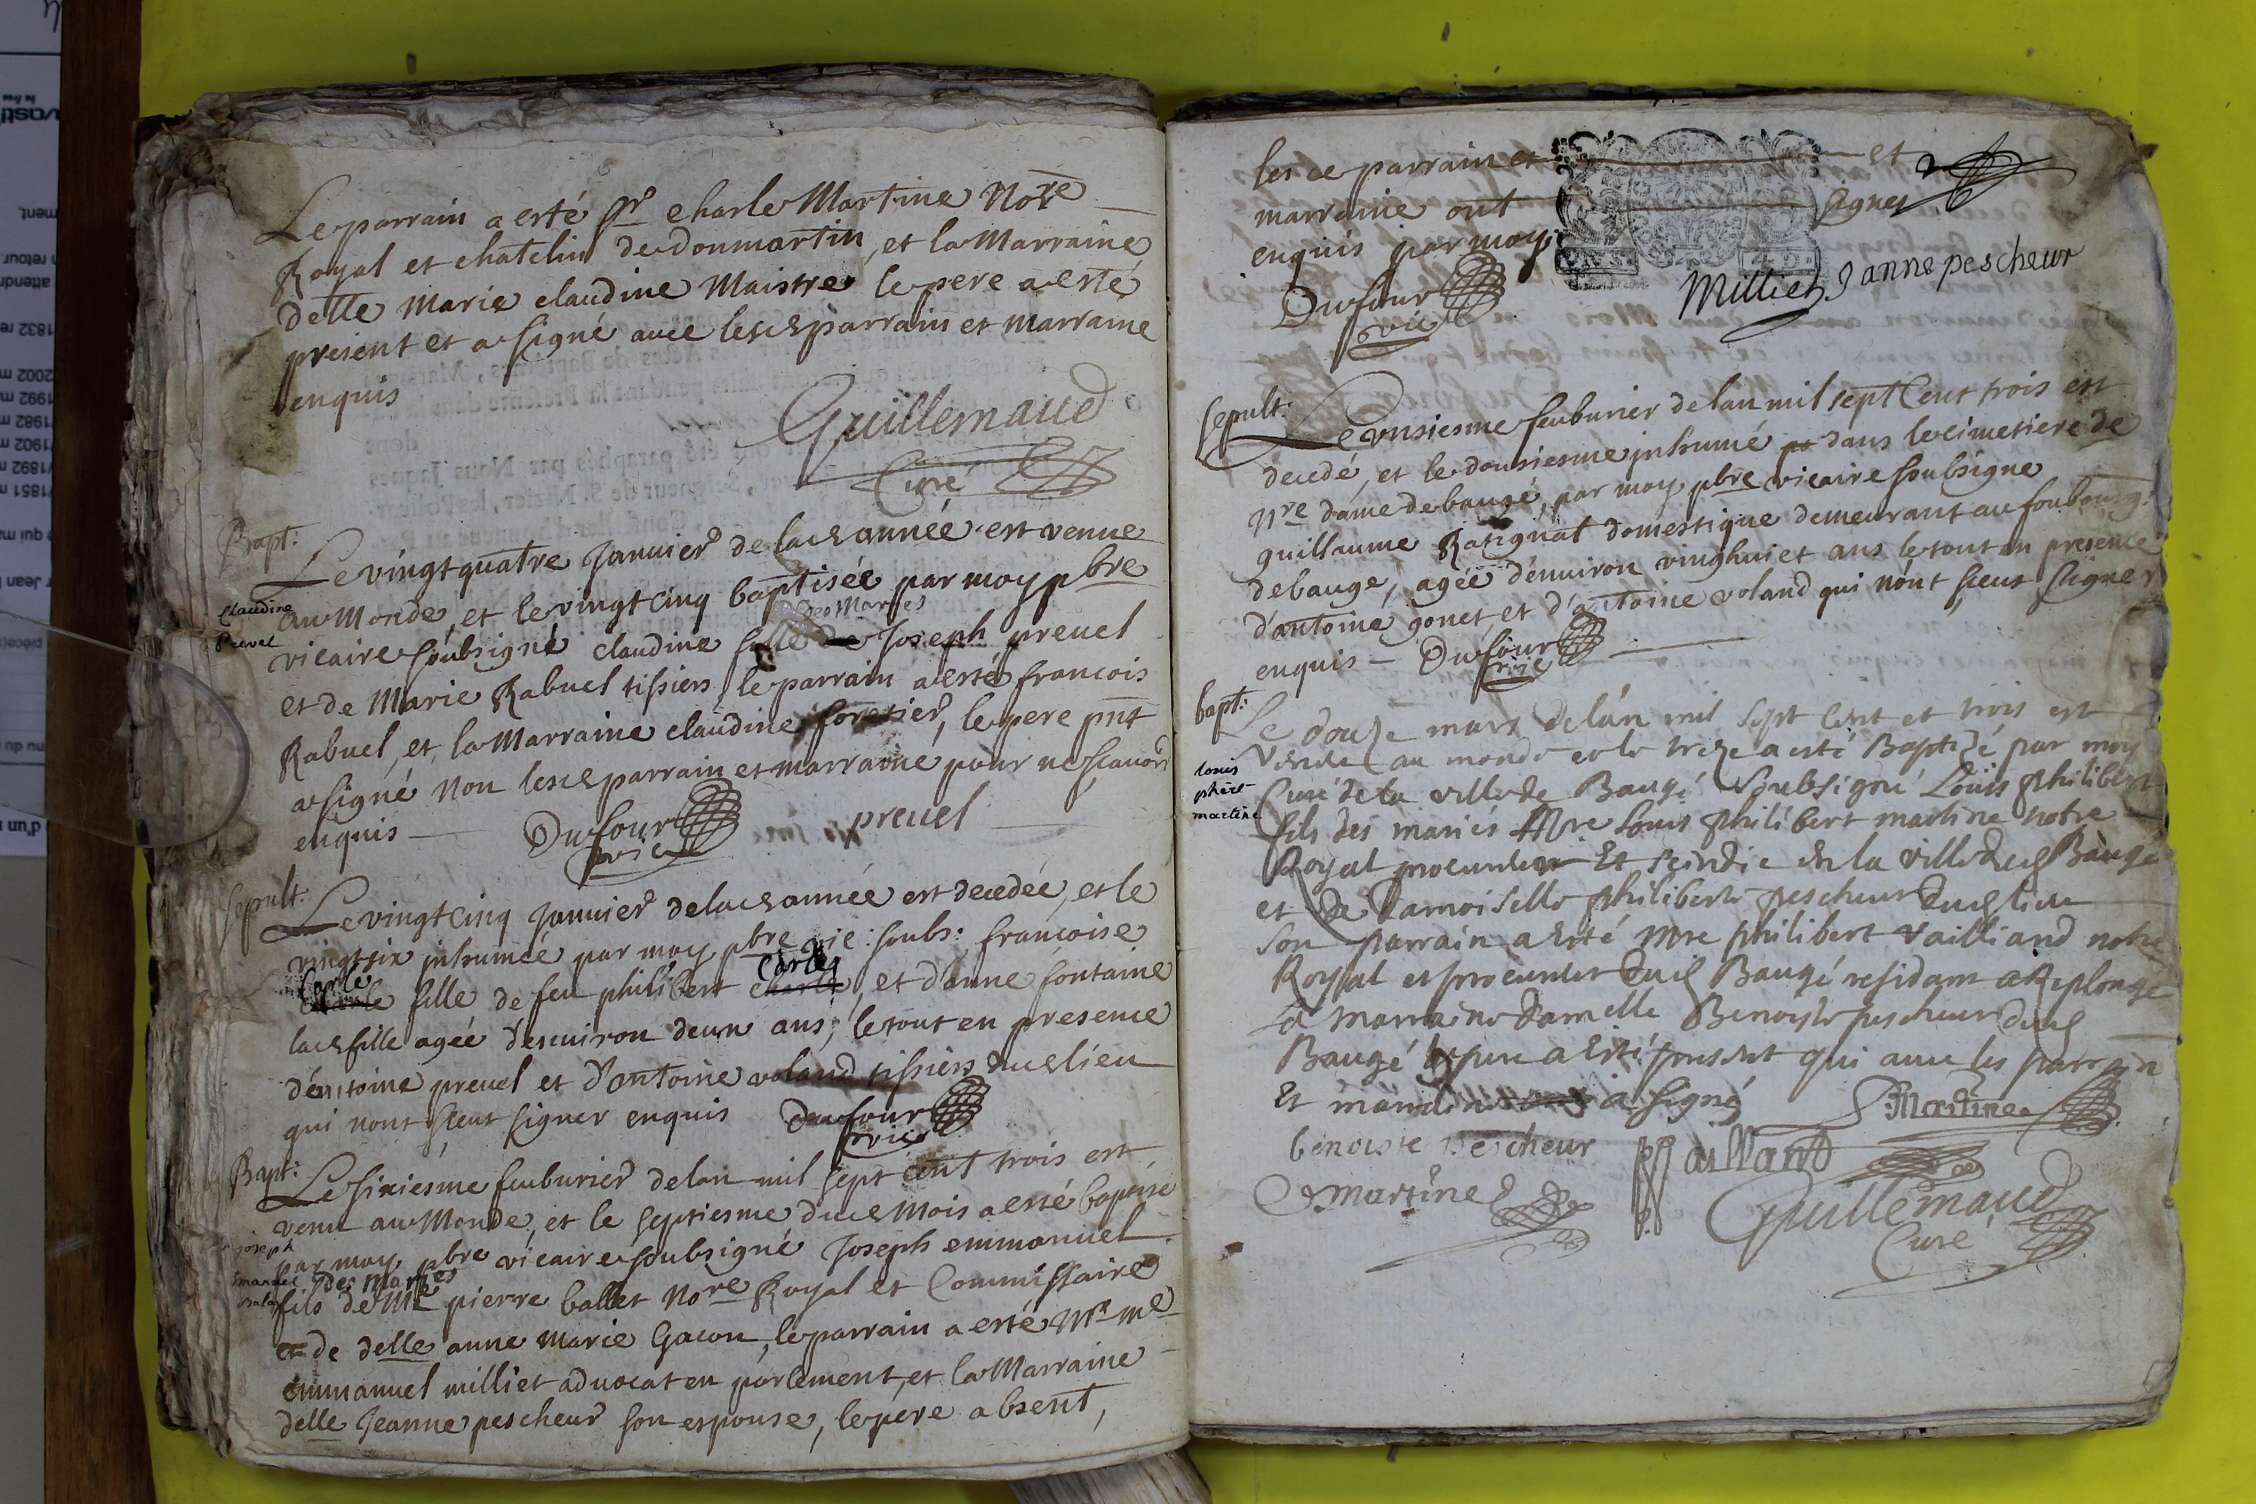 Le parrain a esté Sr charle Martine Nore
Royal et chatelin de donmartin, et la Marraine
delle marie claudine Maistre le pere a esté
present et a signé avec lesds parrain et marraine
enquis
Guillemaud
Curé
Bapt:
Le vingt quatre Januier de lads année est venue
au Monde, et le vingt cinq baptisée par moy pbre
Claudine
Prevel
des Maries
vicaire soubsigné claudine fille de Joseph preuel
et de Marie Rabuel tissiers le parrain a esté francois
Rabuel, et la Marraine claudine foretier, le pere pnt
a signé non lesds parrain et marraine pour ne scauoir
enquis Dufour preuel
vic
Sepult:
Le vingt cinq Januier de lads année est decedée, et le
vingt six inhumée par moy pbre vic: soubs: francoise
Carle Carle
fille de feu philibert et d'anne fontaine
lads fille agée d'enuiron deux ans, le tout en presence
d'entoine preuel et d'antoine voland tissiers duds lieu
qui nont sceut signer enquis Dufour
vic
Bapt:
Le sixiesme feuburier de lan mil sept cent trois est
venu au Monde, et le septiesme duds Mois a esté baptisé
joseph
Emanuel
par moy pbre vicaire soubsigné Joseph emmanuel
des Maries
fils de Me pierre ballet Nore Royal et Commissaire
et de delle anne marie Gacon, le parrain a esté Mr me
emmanuel milliet aduocat en parlement, et la Marraine
delle Jeanne pescheur son espouse, le pere absent,
les ce parrain et et
marraine ont signez
enquis par moy
Dufour
vic
Milliet Janne pescheur
Sepult:
Le vnsiesme feuburier de lan mil sept Cent trois est
decedé, et le dousiesme inhumé dans le cimetiere de
Nre dame de baugé, par moy pbre vicaire soubsigne
guillaume Ratignat domestique demeurant au foubourg
de bauge, agée d'enuiron vinghuiet ans le tout en presence
d'antoine gonet et d'antoine voland qui n'ont sceut signer
enquis Dufour
vic
bapt:
Le douze mars de lán mil sept cent et trois est
venu au monde et le treze a esté Baptizé par moy
louis
phért
martine
Curé de la ville de Baugé Soubsigné Loüis philibert
fils des mariés Mre Louis philibert martine notre
Royal procureur Et scindic de la ville duds Baugé
et de Damoiselle philiberte pescheur duds lieu
son parrain a esté Mre philibert vailliand notre
Royal et procureur duds Baugé residant a Replonge
La marraine damelle Benoiste pescheur duds
Baugé le pere a esté present qui auec les parrain
Et maraine a signé
Martine
benoiste pescheur vaillant
martine
Guillemaud
Curé